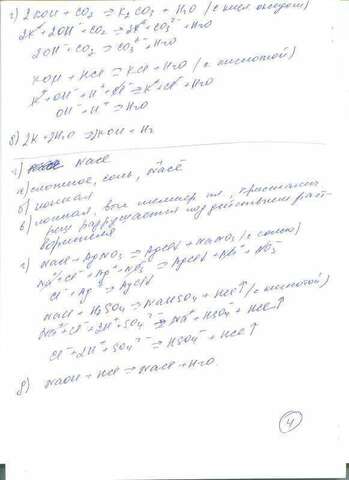 г) 2KOH + CO2 => K2CO3 + H2O (с кисл оксидом)
2K+ + 2OH- + CO2 => 2K+ + CO3 2- + H2O
2OH- + CO2 => CO3 2- + H2O
KOH + HCl => KCl + H2O (с кислотой)
K+ + OH- + H+ + Cl- => K+ + Cl- + H2O
OH- + H+ => H2O
д) 2K + 2H2O => 2KOH + H2
NaCl
а) сложное, соль, NaCl
б) ионная
в) ионная, выс темпер пл, кристалич
реш разрушается под действием раст-
ворителя
г) NaCl + AgNO3 => AgCl↓ + NaNO3 (с солью)
Na+ + Cl- + Ag+ + NO3- => AgCl↓ + Na+ + NO3-
Cl- + Ag+ => AgCl↓
NaCl + H2SO4 => NaHSO4 + HCl↑ (с кислотой)
Na+ + Cl- + 2H+ + SO4 2- => Na+ + HSO4- + HCl↑
Cl- + 2H+ + SO4 2- => HSO4- + HCl↑
д) NaOH + HCl => NaCl + H2O
4